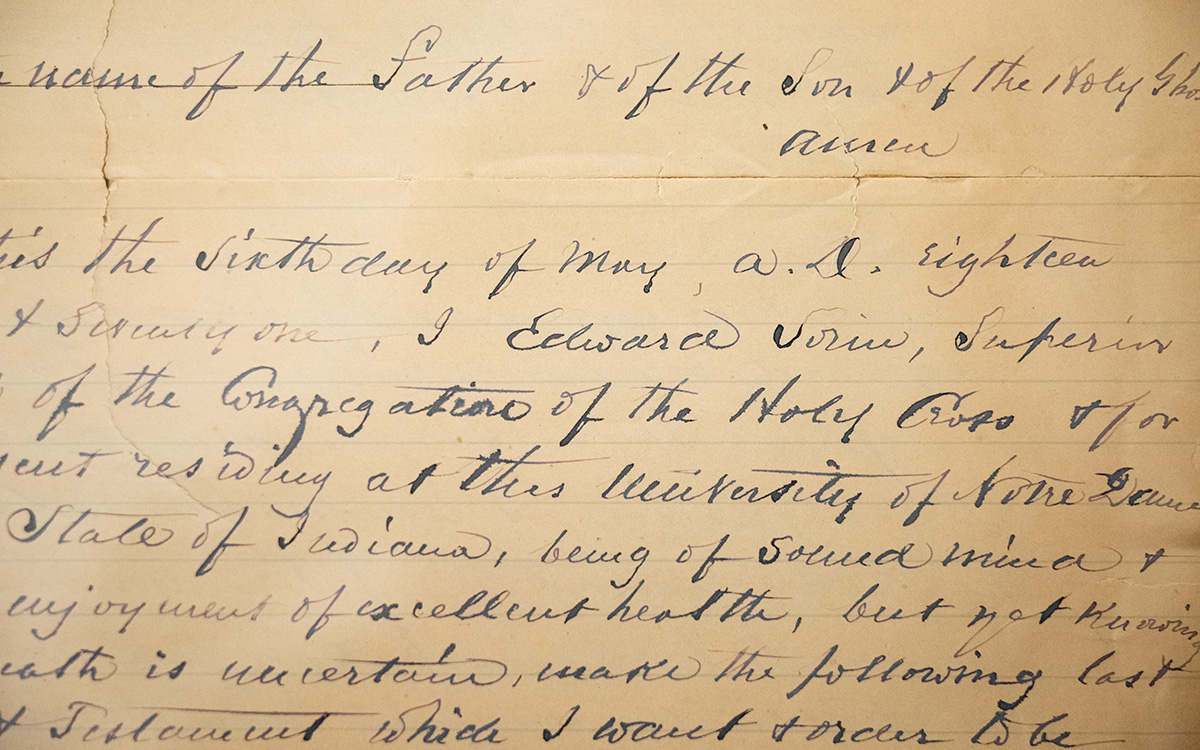 name of the Father & of the Son & of the Holy Gho
amen
this the Sixth day of May, a. D. Eighteen
& Seventy one, I Edward Sorin, Superior
of the Congregation of the Holy Cross & for
ent residing at this University of Notre Dame
State of Indiana, being of Sound mind &
enjoyment of excellent health, but yet Knowing
eath is uncertain, make the following last
& Testament which I want & order to be